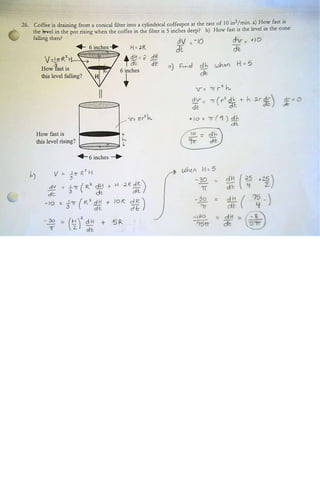 26. Coffee is draining from a conical filter into a cylindrical coffeepot at the rate of 10 in³/min. a) How fast is
the level in the pot rising when the coffee in the filter is 5 inches deep? b) How fast is the level in the cone
falling then?
6 inches
H=2R
dV/dt = -10
dv/dt = +10
V=⅓πR²H
dH/dt = 2 dR/dt
How fast is
this level falling?
H
6 inches
a) Find dh/dt when H=5
v = πr²h
dv/dt = π(r² dh/dt + h·2r dr/dt) dr/dt = 0
v = πr²h
+10 = π(9) dh/dt
10/9π = dh/dt
How fast is
this level rising?
6 inches
b) V = ⅓πR²H
dV/dt = ⅓π(R² dH/dt + H·2R dR/dt)
-10 = ⅓π(R² dH/dt + 10R dR/dt)
-30/π = (H/2)² dH/dt + 5R
when H=5
-30/π = dH/dt (25/4 + 25/2)
-30/π = dH/dt (75/4)
-120/75π = dH/dt = -8/5π